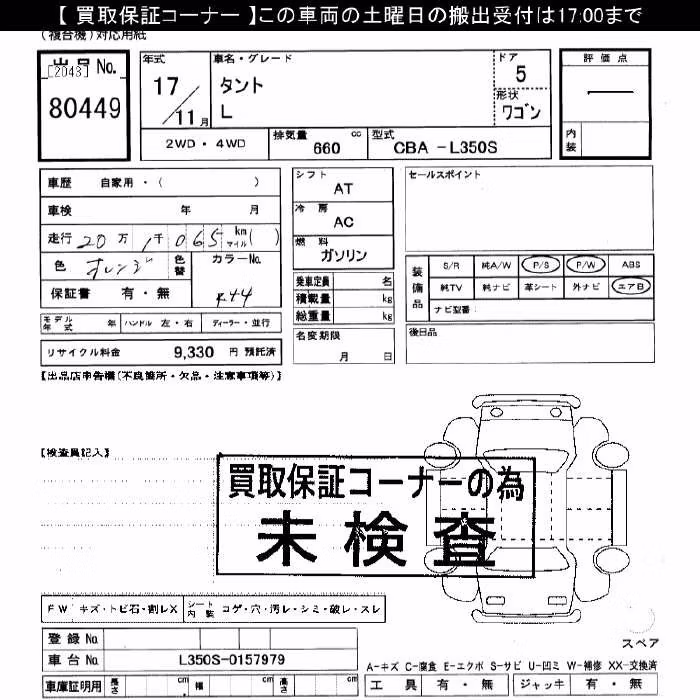 【 買取保証コーナー 】この車両の土曜日の搬出受付は17:00まで
(複合機)対応用紙
出品 No.
[2043]
80449
年式
17
11月
車名・グレード
タント
L
ドア
5
形状
ワゴン
評価点
内装
2WD・4WD
排気量 cc
660
型式
CBA -L350S
車歴 自家用・( )
車検 年 月
走行 20万 1千065 km マイル ( )
色 オレンジ 色替 カラーNo.
保証書 有・無 R44
モデル年式 年 ハンドル 左・右 ディーラー・並行
リサイクル料金 9,330 円 預託済
シフト
AT
冷房
AC
燃料
ガソリン
乗車定員 名
積載量 kg
総重量 kg
名変期限
月 日
セールスポイント
装備品
S/R 純A/W P/S P/W ABS
純TV 純ナビ 革シート 外ナビ エアB
ナビ型番
後日品
【出品店申告欄(不良箇所・欠品・注意事項等)】
【検査員記入】
買取保証コーナーの為
未検査
FW キズ・トビ石・割レX シート内装 コゲ・穴・汚レ・シミ・破レ・スレ
登録 No.
車台 No. L350S-0157979
車庫証明用 長さ cm 幅 cm 高さ cm
スペア
A-キズ C-腐食 E-エクボ S-サビ U-凹ミ W-補修 XX-交換済
工具 有・無 ジャッキ 有・無